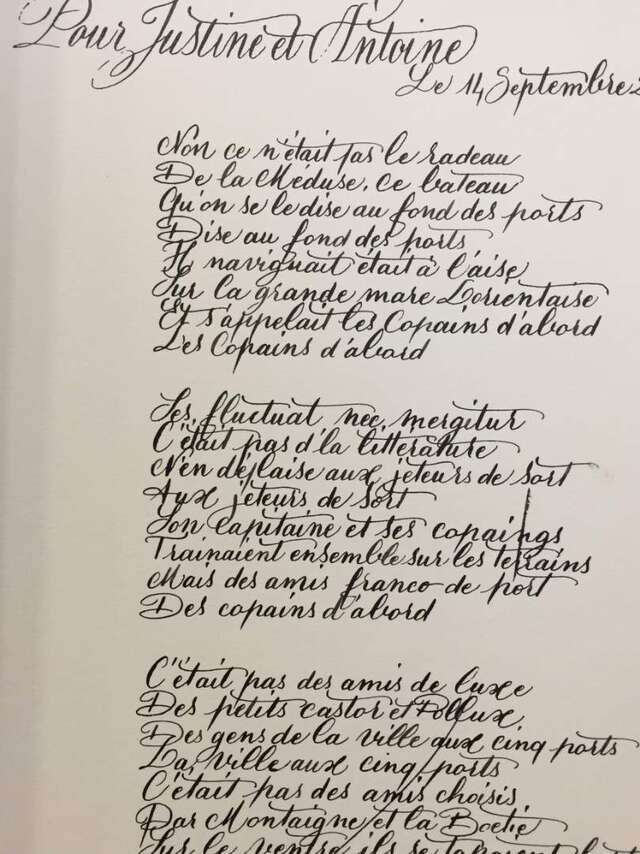 Pour Justine et Antoine
Le 14 Septembre 2
Non ce n'était pas le radeau
De la Méduse, ce bateau
Qu'on se le dise au fond des ports
Dise au fond des ports
Il naviguait était à l'aise
Sur la grande mare Lorientaise
Et s'appelait les Copains d'abord
Les Copains d'abord
Ses fluctuat nec mergitur
C'était pas d'la littérature
N'en déplaise aux jeteurs de sort
Aux jeteurs de sort
Son capitaine et ses copaings
Trainaient ensemble sur les terrains
Mais des amis franco de port
Des copains d'abord
C'était pas des amis de luxe
Des petits castor et Pollux
Des gens de la ville aux cinq ports
La ville aux cinq ports
C'était pas des amis choisis
Par Montaigne et la Boetie
Sur le ventre ils se tapaient